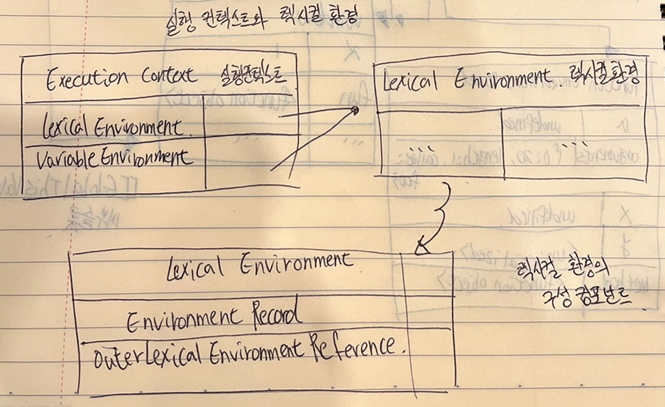 실행 컨텍스트와 렉시컬 환경
Execution Context 실행컨텍스트
Lexical Environment.
Variable Environment
Lexical Environment. 렉시컬환경
Lexical Environment
Environment Record
Outer Lexical Environment Reference.
렉시컬 환경의
구성 컴포넌트